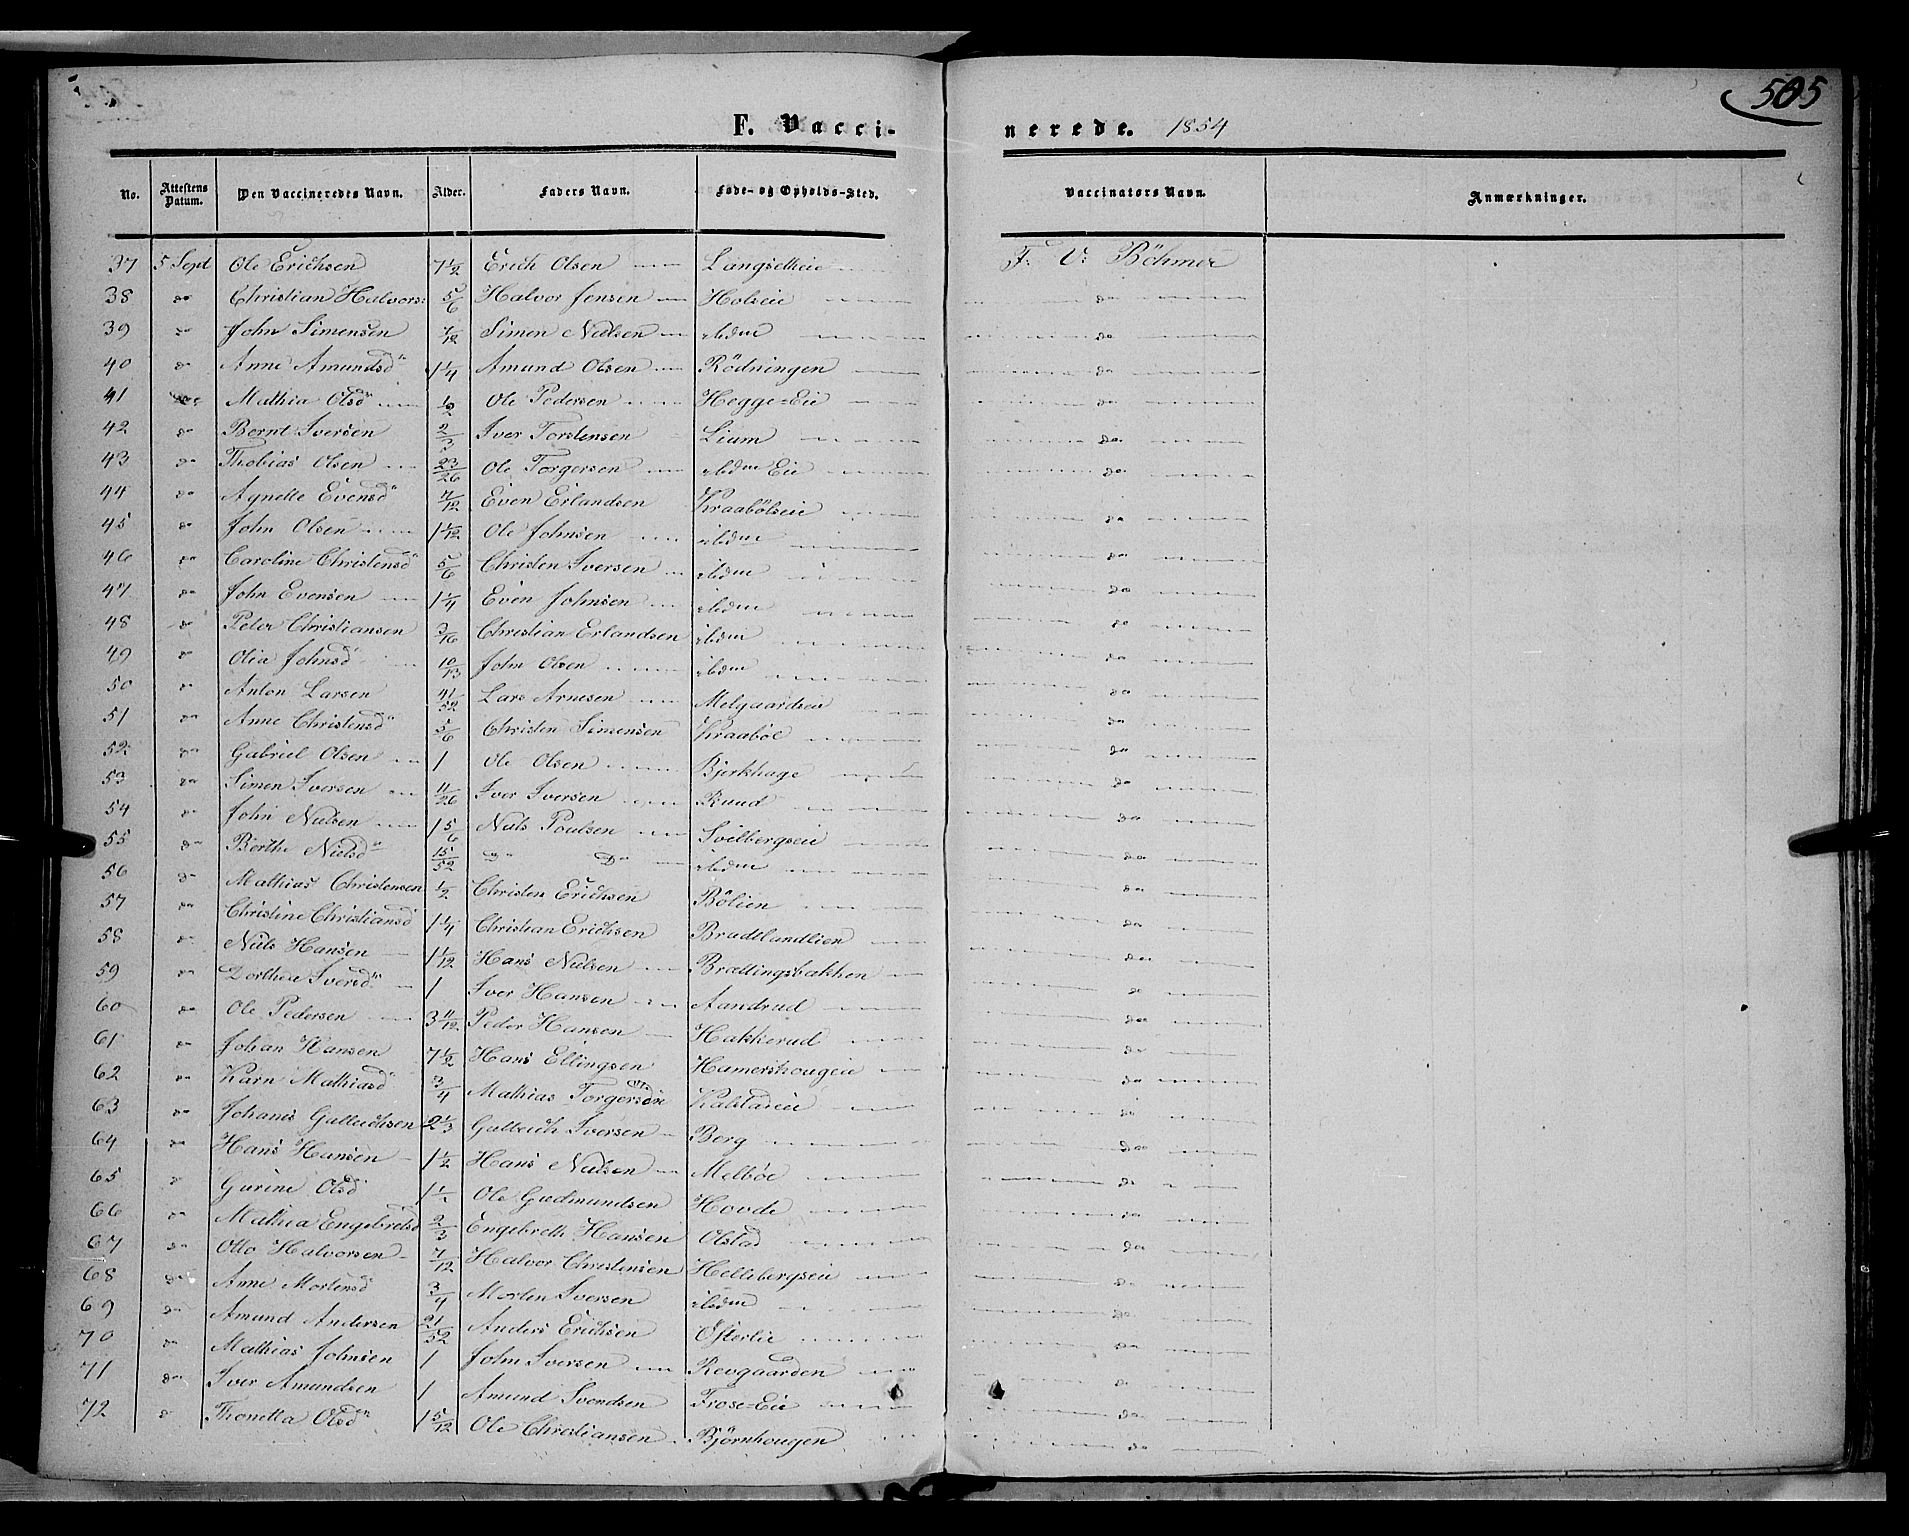 505
F. Vacci-
nerede. 1854
No. Attestens Datum. Den Vaccineredes Navn. Alder. Faders Navn. Føde- og Opholds-Sted. Vaccinators Navn. Anmærkninger.
37 5 Sept Ole Erichsen 7 1/2 Erich Olsen Langsetheie F: V: Böhmer
38 do Christian Halvors: 5/6 Halvor Jensen Holseie do
39 do John Simensen 7/12 Simen Nielsen ibdm do
40 do Anne Amundsd 1 1/4 Amund Olsen Rödningen do
41 do Mathia Olsd 1/2 Ole Pedersen Hegge-Eie do
42 do Bernt Iversen 2/3 Iver Torstensen Lium do
43 do Thobias Olsen 23/26 Ole Torgersen ibdm Eie do
44 do Agnette Evensd 7/12 Even Erlandsen Kraabölseie do
45 do John Olsen 1 1/12 Ole Johnsen ibdm do
46 do Caroline Christensd 5/6 Christen Iversen ibdm do
47 do John Evensen 1 1/4 Even Johnsen ibdm do
48 do Peter Christiansen 3/16 Christian Erlandsen ibdm do
49 do Olia Johnsd 10/13 John Olsen ibdm do
50 do Anton Larsen 41/52 Lars Arnesen Melgaardseie do
51 do Anne Christensd 5/6 Christen Simensen Kraaböl do
52 do Gabriel Olsen 1 Ole Olsen Bjerkhage do
53 do Simen Iversen 11/26 Iver Iversen Ruud do
54 do John Nielsen 1 5/6 Niels Poulsen Svilbergseie do
55 do Berthe Nielsd 15/52 do Do ibdm do
56 do Mathias Christensen 1/2 Christen Erichsen Bölien do
57 do Christine Christiansd 1 1/4 Christian Erichsen Bradtlandlien do
58 do Niels Hansen 1 1/12 Hans Nielsen Brættingsbakken do
59 do Dorthea Iversd 1 Iver Hansen Aandrud do
60 do Ole Pedersen 3 11/12 Peder Hansen Hakkerud do
61 do Johan Hansen 7 1/2 Hans Ellingsen Hamershougeie do
62 do Karn Mathiasd 3/4 Mathias Torgersen Kalstadeie do
63 do Johans Gulleichsen 2 1/3 Gulleich Iversen Berg do
64 do Hans Hansen 1 1/2 Hans Nielsen Melböe do
65 do Gurine Olsd Ole Gudmundsen Hovde do
66 do Mathea Engebretsd 2/3 Engebreth Hansen Olstad do
67 do Otto Halvorsen 7/12 Halvor Christensen Hellebergseie do
68 do Anne Mortensd 3/4 Morten Iversen ibdm do
69 do Amund Andersen 21/52 Anders Erichsen Österlie do
70 do Mathias Johnsen 1 John Iversen Revgaarden do
71 do Iver Amundsen 1 Amund Svendsen Frose-Eie do
72 do Thonetta Olsd 1 5/12 Ole Christiansen Björnhougen do